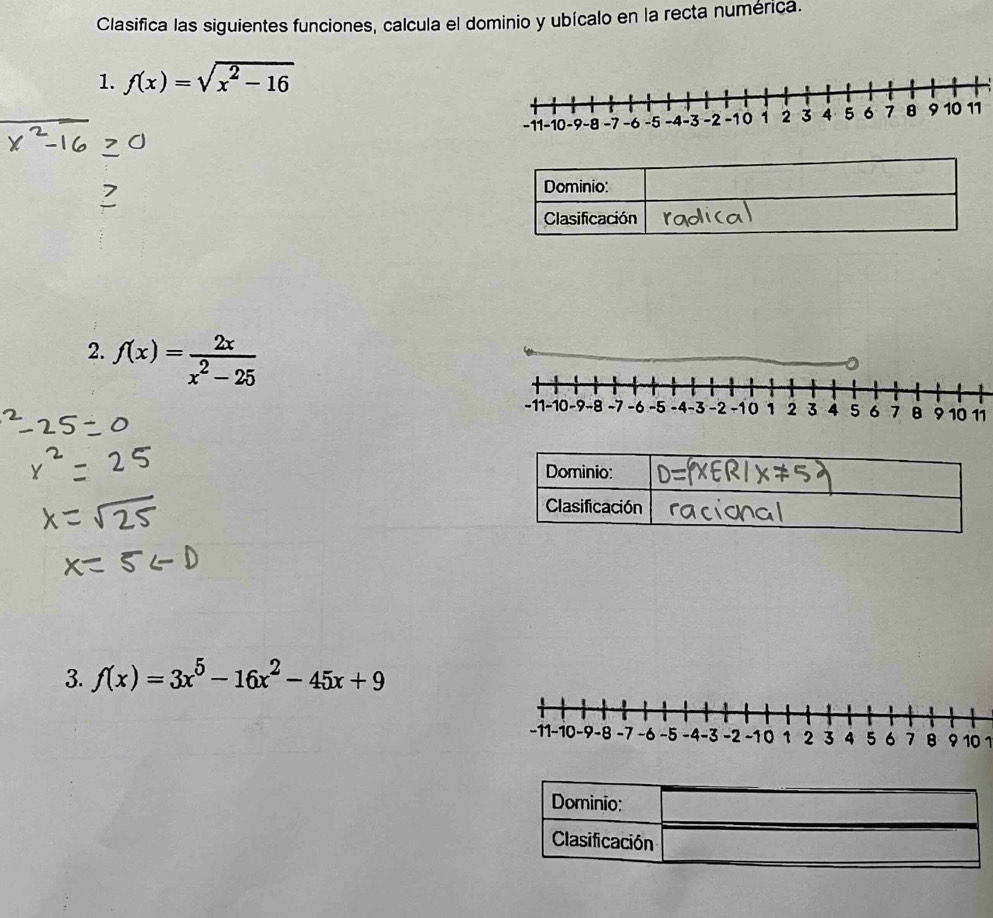 Clasifica las siguientes funciones, calcula el dominio y ubícalo en la recta numérica.
1. f(x) = √(x² - 16)
-11-10-9-8 -7 -6 -5 -4-3 -2 -1 0 1 2 3 4 5 6 7 8 9 10 11
x² - 16 ≥ 0
≥
Dominio:
Clasificación radical
2. f(x) = 2x / (x² - 25)
-11-10-9-8 -7 -6 -5 -4-3 -2 -1 0 1 2 3 4 5 6 7 8 9 10 11
² - 25 = 0
x² = 25
x = √25
x = 5 ← D
Dominio: D={x∈R/x≠5}
Clasificación racional
3. f(x) = 3x⁵ - 16x² - 45x + 9
-11-10-9-8 -7 -6 -5 -4-3 -2 -1 0 1 2 3 4 5 6 7 8 9 10 1
Dominio:
Clasificación